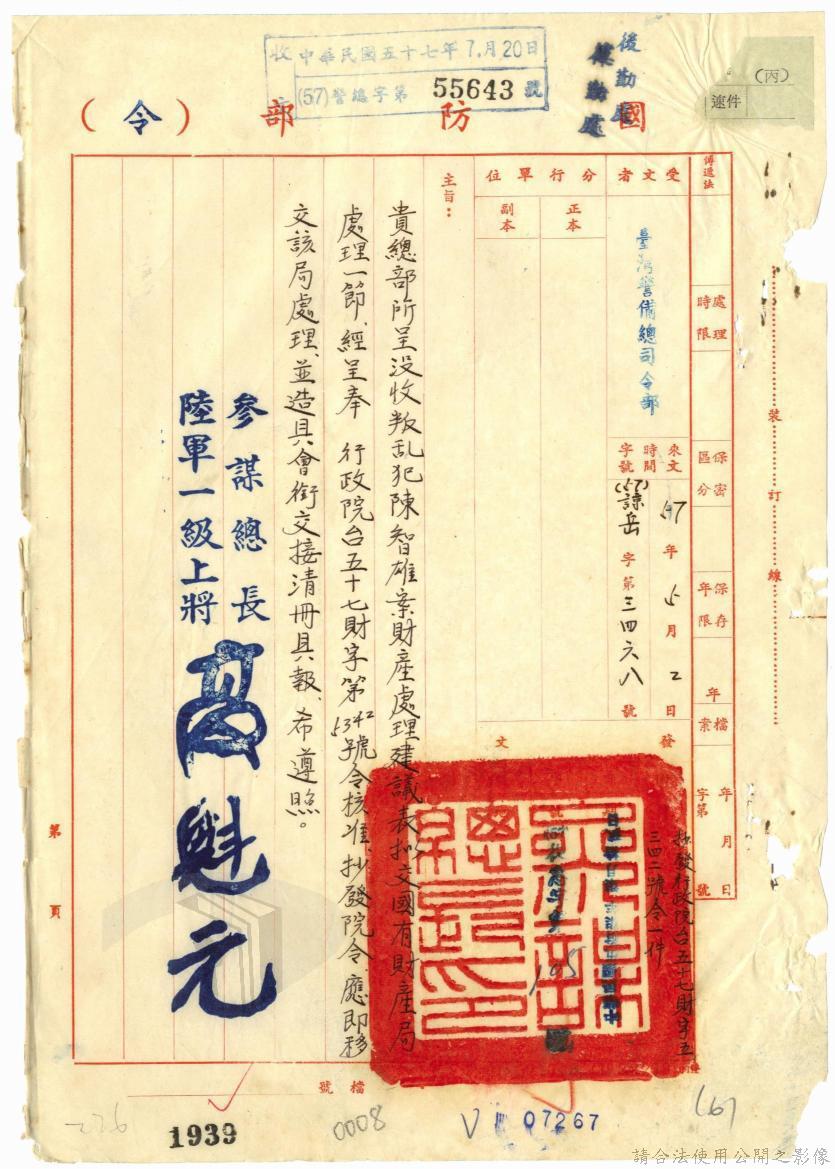 收 中華民國五十七年7月20日
(57)警總字第 55643 號
後勤處
業勤處
(丙)
速件
國防部(令)
傳遞法
處理時限
保密區分
保存年限
年 月 日
檔案 字第 號
裝訂線
受文者
臺灣警備總司令部
來文時間字號
57年5月2日
(57)諒岳字第三四六八號
分行單位
正本
副本
發文
抄發行政院台五十七財字五三四二號令一件
主旨:
貴總部所呈没收叛乱犯陳智雄案財產處理建議表拟交國有財產局
處理一節、經呈奉 行政院台五十七財字第5342號令核准、抄發院令、應即移
交該局處理、並造具會銜交接清冊具報、希遵照。
參謀總長
陸軍一級上將
高魁元
第 頁
檔號
1939
0008
07267
請合法使用公開之影像